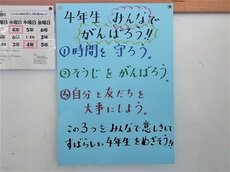 4年生 みんなで
がんばろう!!
①時間を守ろう。
②そうじをがんばろう。
③自分と友だちを
大事にしよう。
この3つをみんなで意しきして
すばらしい4年生をめざそう!!
水曜日 木曜日 金曜日
4年 4年